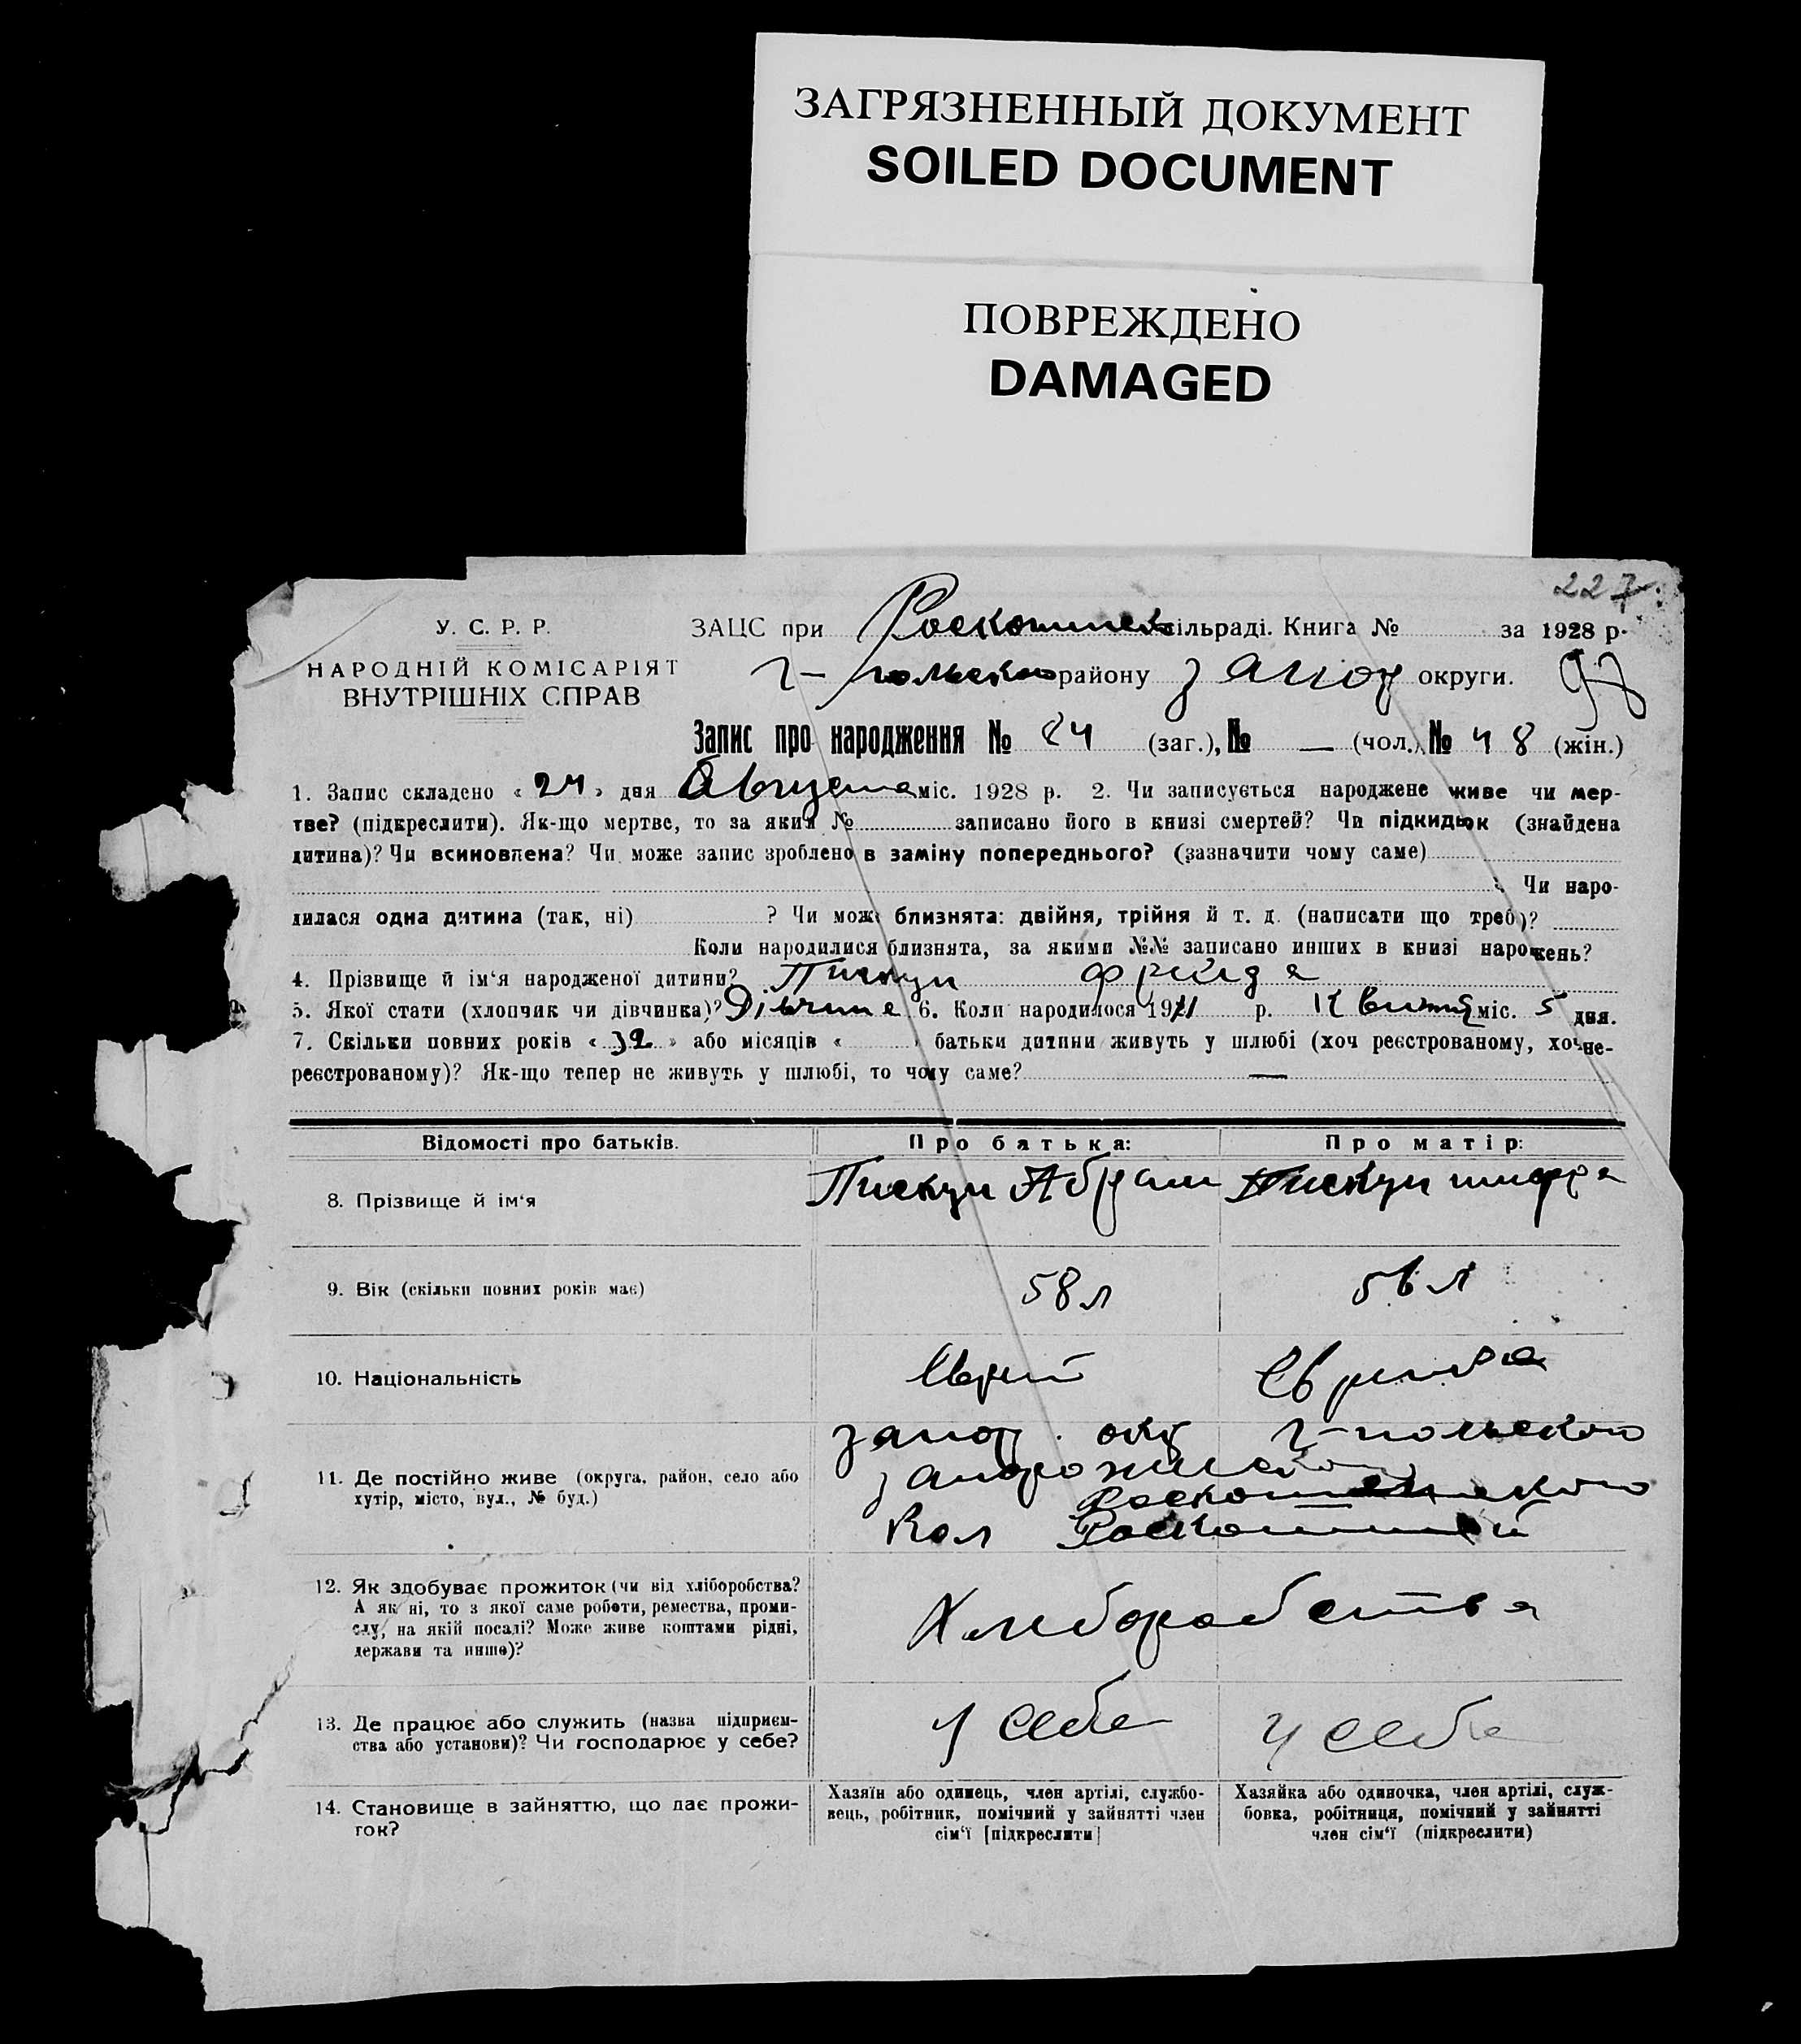 ЗАГРЯЗНЕННЫЙ ДОКУМЕНТ
SOILED DOCUMENT
ПОВРЕЖДЕНО
DAMAGED
227
У. С. Р. Р.
НАРОДНІЙ КОМІСАРІЯТ
ВНУТРІШНІХ СПРАВ
ЗАЦС при сільраді. Книга № за 1928 р.
г-польского району Запор округи.
Запис про народження № 84 (заг.), № — (чол.), № 48 (жін.)
1. Запис складено «24» дня Августа міс. 1928 р. 2. Чи записується народжене живе чи мер-
тве? (підкреслити). Як-що мертве, то за яким № записано його в книзі смертей? Чи підкидьок (знайдена
дитина)? Чи всиновлена? Чи може запис зроблено в заміну попереднього? (зазначити чому саме)
Чи наро-
дилася одна дитина (так, ні) ? Чи може близнята: двійня, трійня й т. д. (написати що треб)?
Коли народилися близнята, за якими №№ записано инших в книзі народжень?
4. Прізвище й ім'я народженої дитини? Пискун Фрейда
5. Якої стати (хлопчик чи дівчинка)? Дівчина 6. Коли народилося 1911 р. Квітня міс. 5 дня.
7. Скільки повних років «32» або місяців « » батьки дитини живуть у шлюбі (хоч реєстрованому, хоч не-
реєстрованому)? Як-що тепер не живуть у шлюбі, то чому саме? —
Відомості про батьків. Про батька: Про матір:
8. Прізвище й ім'я Пискун Абрам Пискун шифра
9. Вік (скільки повних років має) 58 л 56 л
10. Національність Єврей Єврейка
запор. окр г-польского
11. Де постійно живе (округа, район, село або
хутір, місто, вул., № буд.)
Кол
12. Як здобуває прожиток (чи від хліборобства?
А як ні, то з якої саме роботи, ремества, проми-
слу, на якій посаді? Може живе коштами рідні,
держави та инше)?
Хлиборобства
13. Де працює або служить (назва підприєм-
ства або установи)? Чи господарює у себе?
у себе у себе
14. Становище в зайняттю, що дає прожи-
ток?
Хазяїн або одинець, член артілі, службо-
вець, робітник, помічний у зайнятті член
сім'ї [підкреслити]
Хазяйка або одиночка, член артілі, служ-
бовка, робітниця, помічний у зайнятті
член сім'ї (підкреслити)